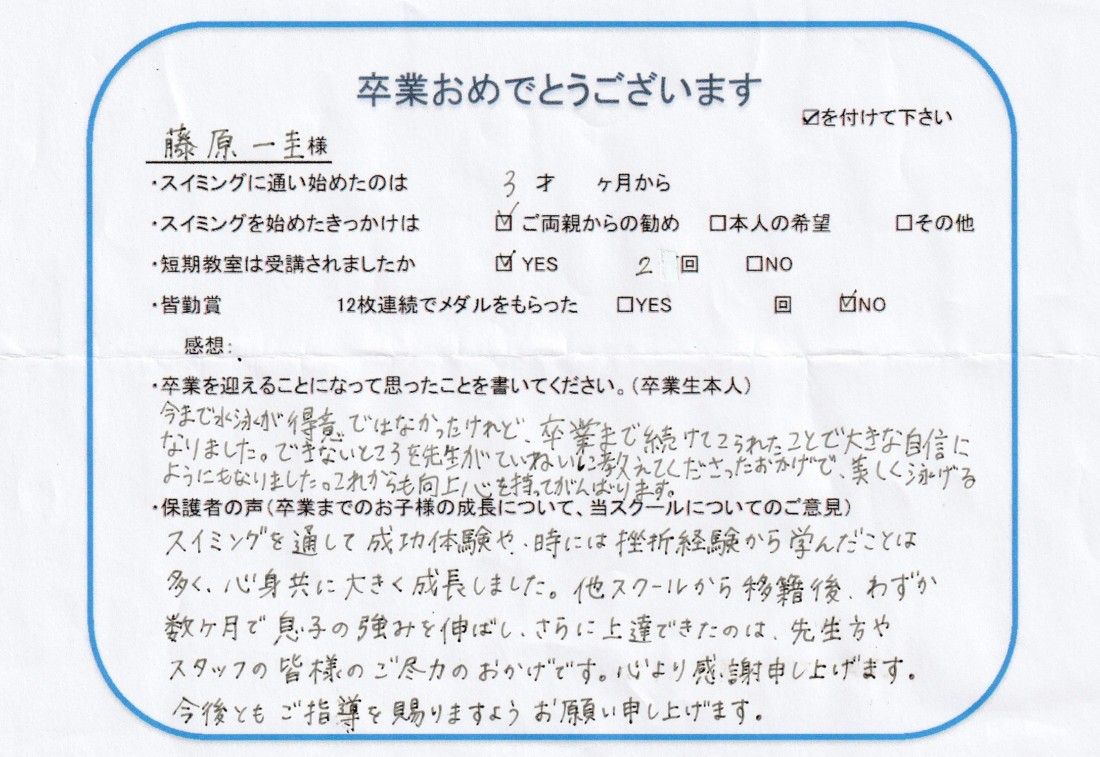 卒業おめでとうございます
☑を付けて下さい
藤原一圭様
・スイミングに通い始めたのは 3 才 ヶ月から
・スイミングを始めたきっかけは ☑ご両親からの勧め □本人の希望 □その他
・短期教室は受講されましたか ☑YES 2 回 □NO
・皆勤賞 12枚連続でメダルをもらった □YES 回 ☑NO
感想:
・卒業を迎えることになって思ったことを書いてください。(卒業生本人)
今まで水泳が得意ではなかったけれど、卒業まで続けてこられたことで大きな自信に
なりました。できないところを先生がていねいに教えてくださったおかげで、美しく泳げる
ようにもなりました。これからも向上心を持ってがんばります。
・保護者の声(卒業までのお子様の成長について、当スクールについてのご意見)
スイミングを通して成功体験や、時には挫折経験から学んだことは
多く、心身共に大きく成長しました。他スクールから移籍後、わずか
数ヶ月で息子の強みを伸ばし、さらに上達できたのは、先生方や
スタッフの皆様のご尽力のおかげです。心より感謝申し上げます。
今後ともご指導を賜りますようお願い申し上げます。